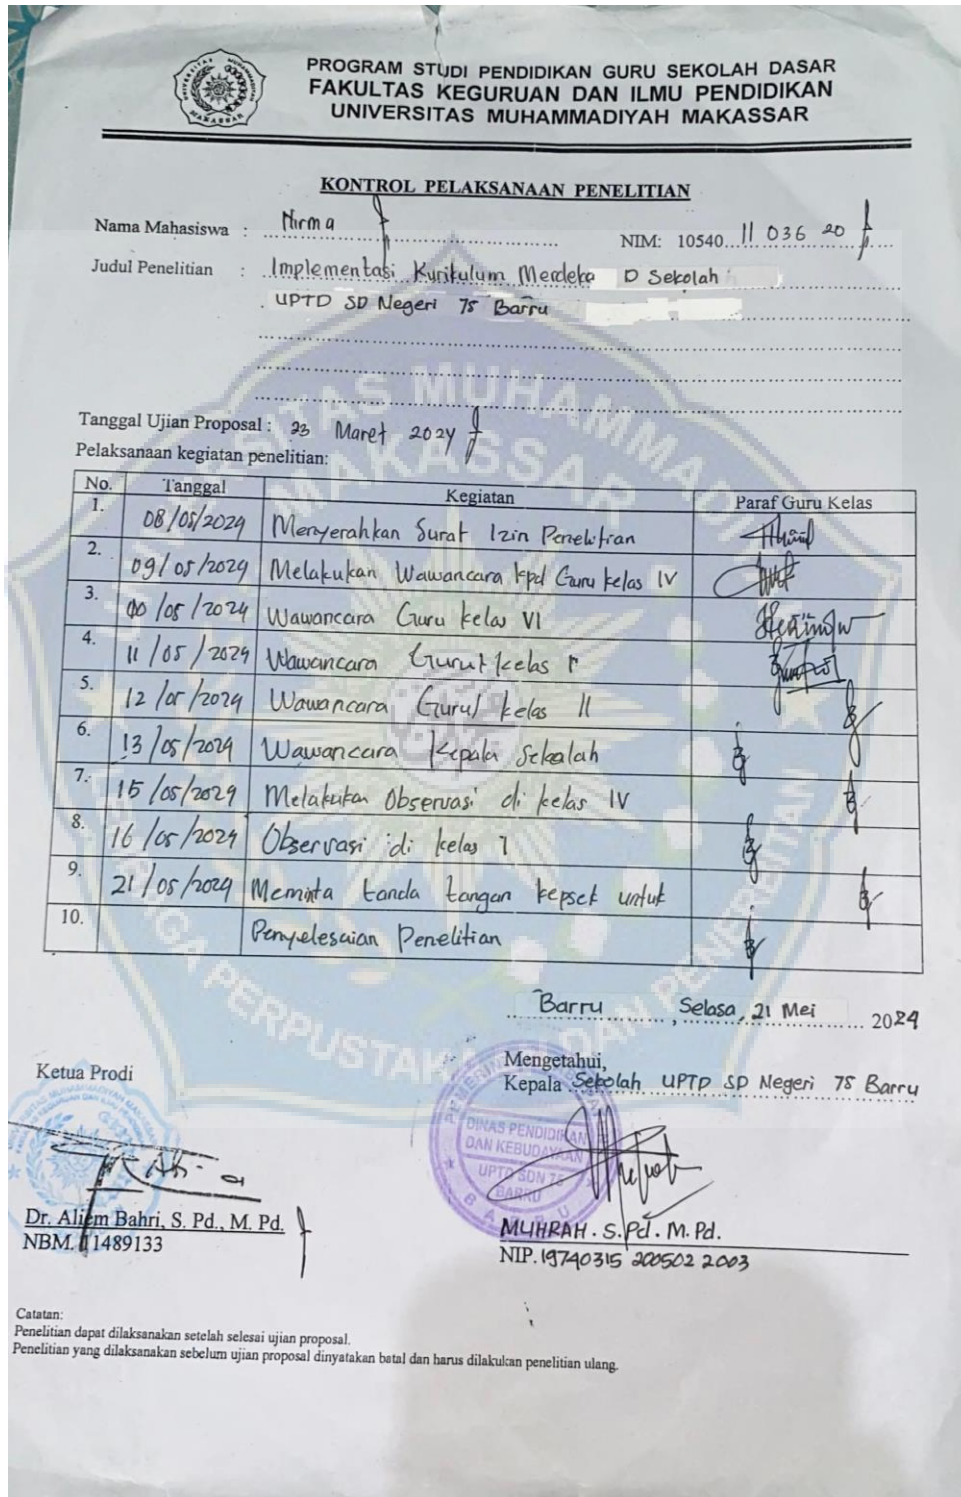 PROGRAM STUDI PENDIDIKAN GURU SEKOLAH DASAR
FAKULTAS KEGURUAN DAN ILMU PENDIDIKAN
UNIVERSITAS MUHAMMADIYAH MAKASSAR
KONTROL PELAKSANAAN PENELITIAN
Nama Mahasiswa : Nirma NIM: 10540 11 036 20
Judul Penelitian : Implementasi Kurikulum Merdeka D Sekolah
UPTD SD Negeri 75 Barru
Tanggal Ujian Proposal : 23 Maret 2024
Pelaksanaan kegiatan penelitian:
No. Tanggal Kegiatan Paraf Guru Kelas
1. 08/05/2024 Menyerahkan Surat Izin Penelitian
2. 09/05/2024 Melakukan Wawancara kpd Guru kelas IV
3. 10/05/2024 Wawancara Guru kelas VI
4. 11/05/2024 Wawancara Guru kelas
5. 12/05/2024 Wawancara Guru kelas II
6. 13/05/2024 Wawancara Kepala Sekolah
7. 15/05/2024 Melakukan Observasi di kelas IV
8. 16/05/2024 Observasi di kelas 1
9. 21/05/2024 Meminta tanda tangan kepsek untuk
10. Penyelesaian Penelitian
Barru, Selasa, 21 Mei 2024
Mengetahui,
Ketua Prodi
Kepala Sekolah UPTD SD Negeri 75 Barru
DINAS PENDIDIKAN
DAN KEBUDAYAAN
UPTD SDN 75
BARRU
Dr. Aliem Bahri, S. Pd., M. Pd.
NBM. 11489133
MUHRAH. S.Pd. M.Pd.
NIP. 19740315 200502 2003
Catatan:
Penelitian dapat dilaksanakan setelah selesai ujian proposal.
Penelitian yang dilaksanakan sebelum ujian proposal dinyatakan batal dan harus dilakukan penelitian ulang.